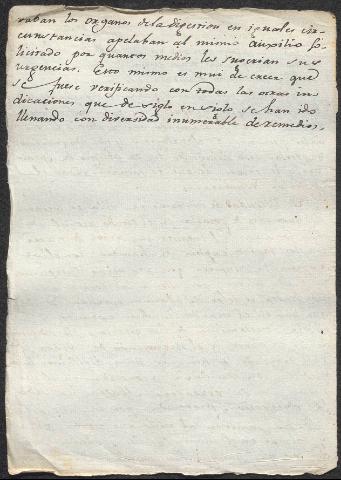 raban los organos de la digestion en iguales cir-
cunstancias apelaban al mismo auxilio so-
licitado por quantos medios les sugerian sus
urgencias. Esto mismo es mui de creer que
se fuese verificando con todas las otras in
dicaciones que de siglo en siglo se han ido
llenando con diversidad inumerable de remedios.